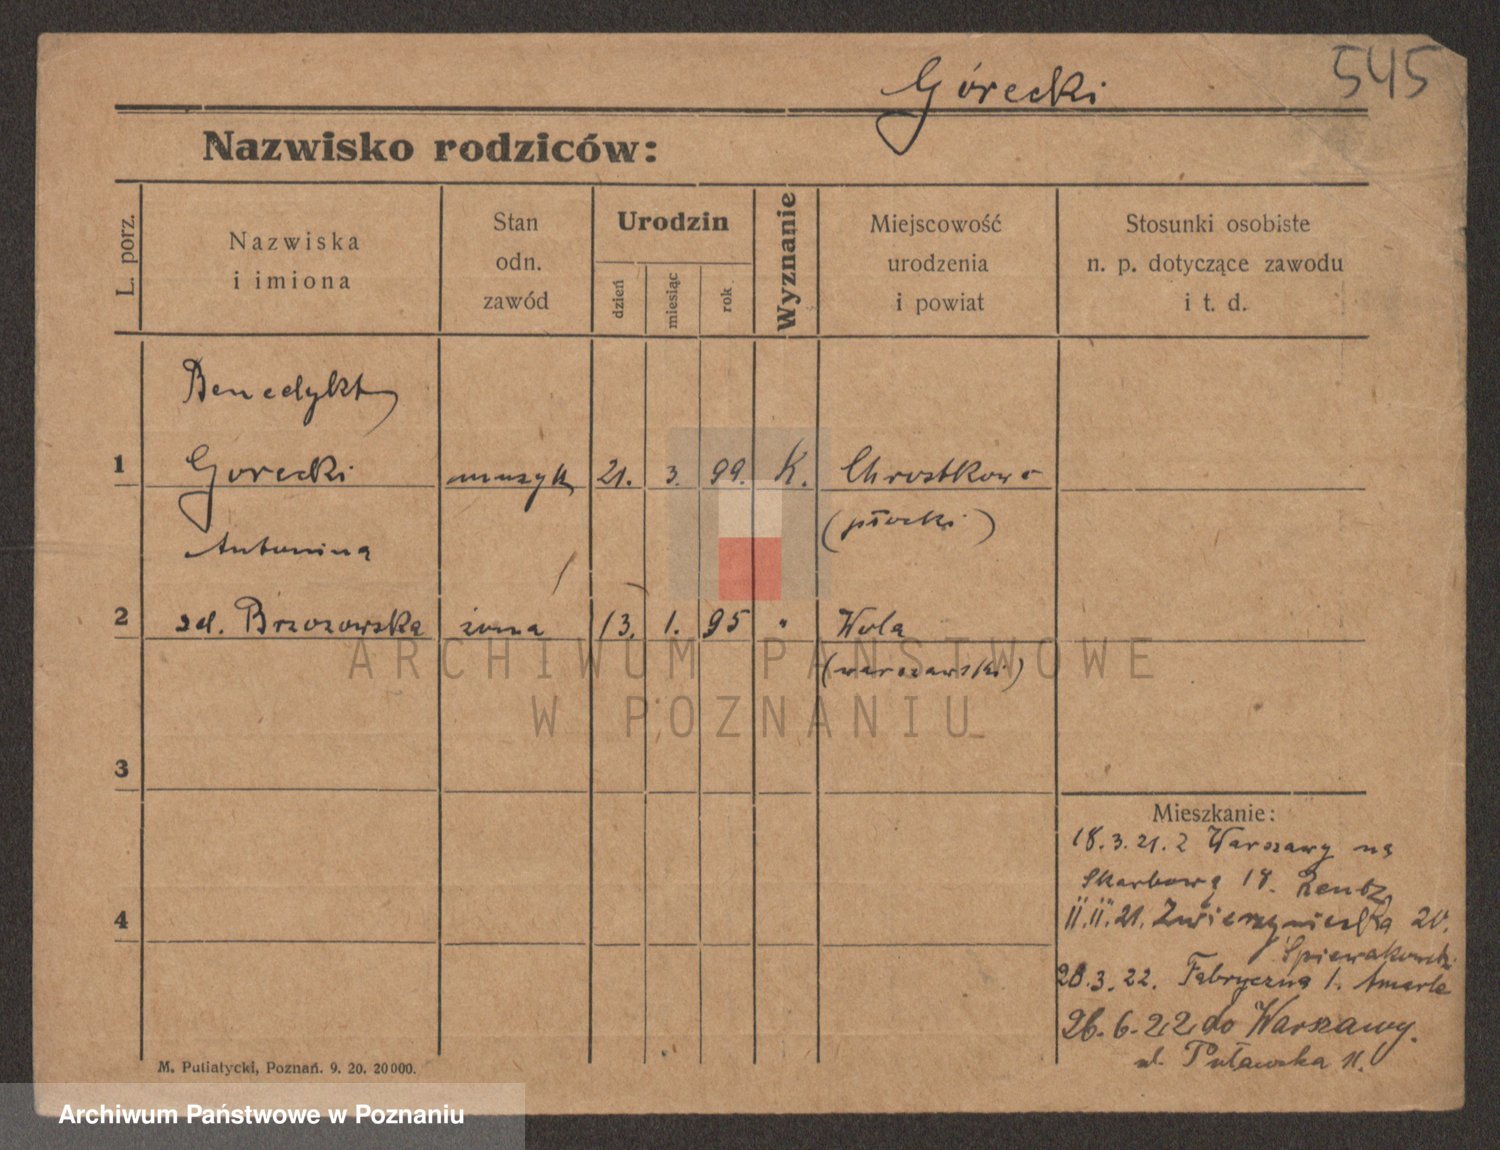 Górecki
545
Nazwisko rodziców:
L. porz.
Nazwiska
i imiona
Stan
odn.
zawód
Urodzin
dzień
miesiąc
rok
Wyznanie
Miejscowość
urodzenia
i powiat
Stosunki osobiste
n. p. dotyczące zawodu
i t. d.
Benedykt
1 Gorecki muzyk 21. 3. 99. K. Chrostkowo
(płocki)
Antonina
2 zd. Brzozowska żona 13. 1. 95 " Wola
(warszawski)
ARCHIWUM PAŃSTWOWE
W POZNANIU
3
Mieszkanie:
18.3.21. z Warszawy na
Skarbową 18.
4
II.II.21. Zwierzyniecka 20.
Śpiewakowski
28.3.22. Fabryczna 1.
26.6.22 do Warszawy.
ul. Puławska 11.
M. Putiatycki, Poznań. 9. 20. 20000.
Archiwum Państwowe w Poznaniu